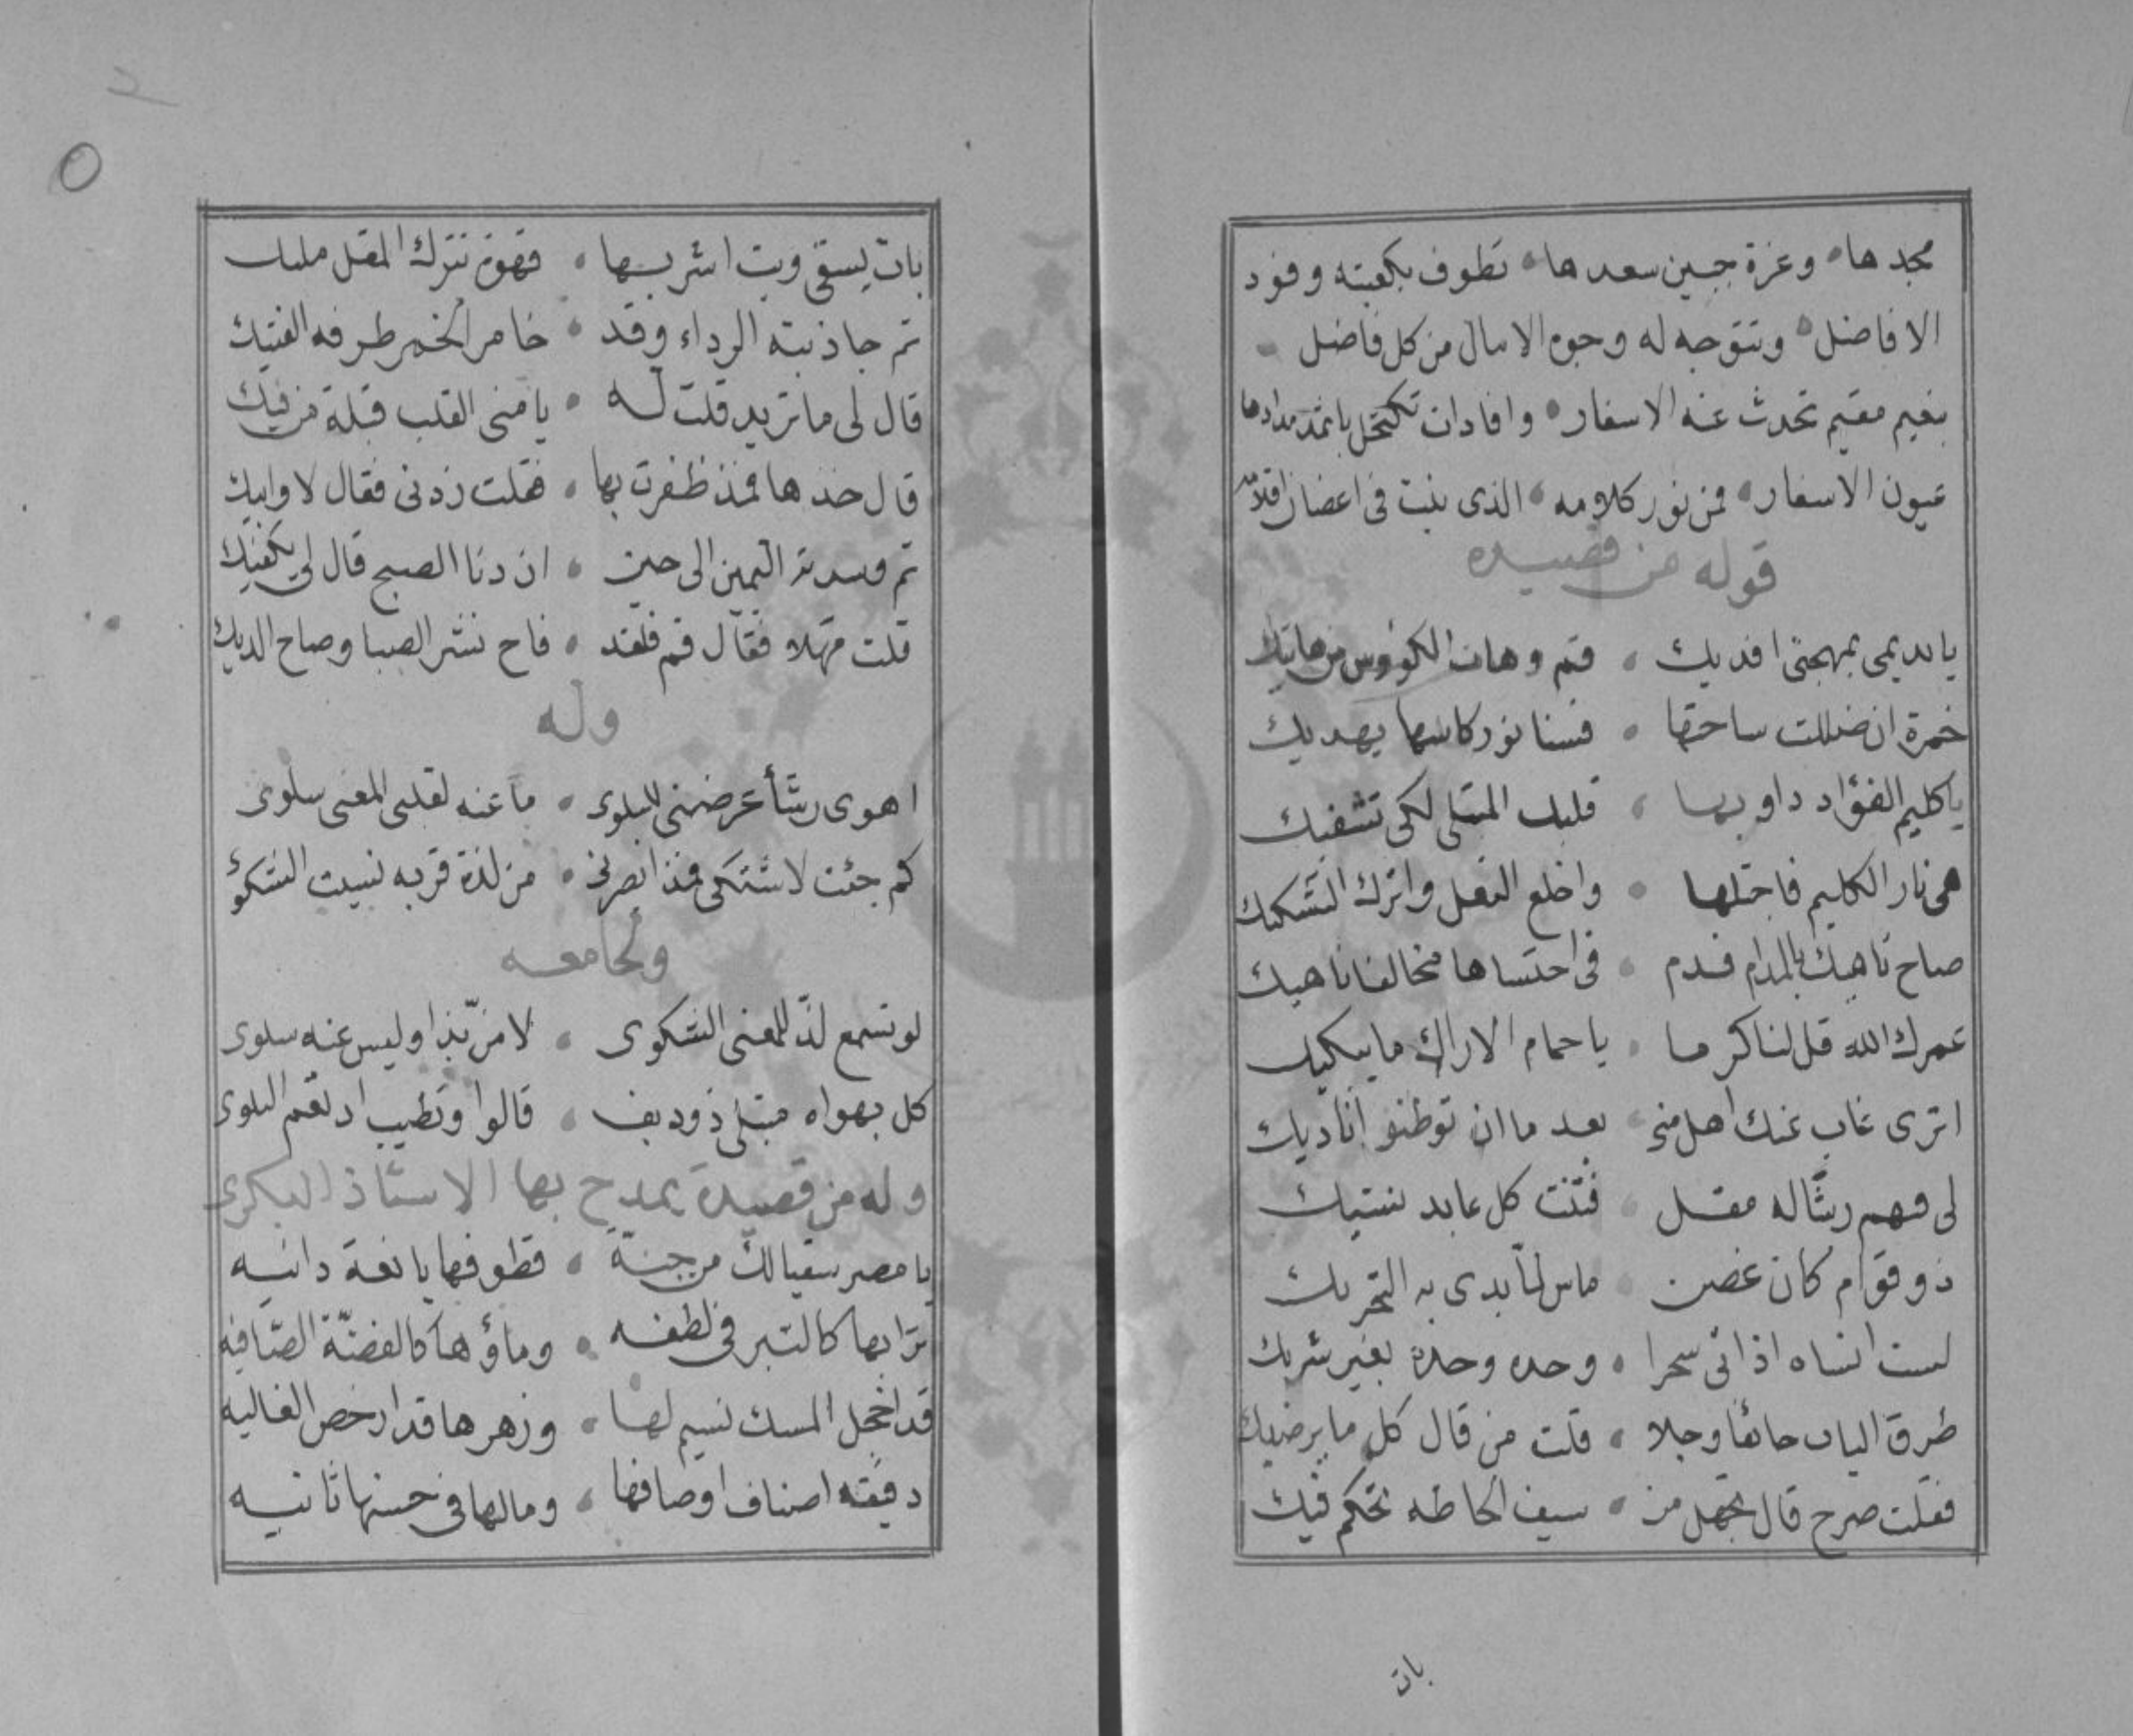 مجدها • وغرة جبين سعدها • تطوف بكعبته وفود
الافاضل • وتتوجه له وجوه الامال من كل فاضل •
بنعيم مقيم تحدث عنه الاسفار • وافادات تكتحل باثمد مدادها
عيون الاسفار • فمن نور كلامه • الذى ينبت فى اغصان اقلامه
قوله من قصيده
يا نديمى بمهجتى افديك • قم وهات الكؤوس من هاتيك
خمرة ان ضللت ساحتها • فسنا نور كاسها يهديك
يا كليم الفؤاد داو بها • قلبك المبتلى لكى تشفيك
هى نار الكليم فاجتلها • واخلع النعل واترك التشكيك
صاح ناهيك بالمدام فدم • فى احتساها مخالفا ناهيك
عمرك الله قل لنا كرما • يا حمام الاراك ما يبكيك
اترى غاب عنك اهل منى • بعد ما ان توطنوا ناديك
لى فيهم رشا له مقل • فتنت كل عابد نسيك
ذو قوام كان غصن • ماس لما بدى به التحريك
لست انساه اذ اتى سحرا • وحده وحده بغير شريك
طرق الباب خائفا وجلا • قلت من قال كل ما يرضيك
فقلت صرح قال تجهل من • سيف الحاظه تحكم فيك
بات
بات يسقى وبت اشربها • قهوة تترك المقل مليك
ثم جاذبته الرداء وقد • خامر الخمر طرفه الفتيك
قال لى ما تريد قلت له • يا منى القلب قبلة من فيك
قال خذها فمذ ظفرت بها • فقلت زدنى فقال لا وابيك
ثم وسدته اليمين الى حين • ان دنا الصبح قال لى يكفيك
قلت مهلا فقال قم فلقد • فاح نشر الصبا وصاح الديك
وله
اهوى رشأ عرضنى للبلوى • ما عنه لقلبى المعنى سلوى
كم جئت لاشتكى فمذ ابصرنى • من لذة قربه نسيت الشكوى
ولجامعه
لو تسمع لذ للمعنى الشكوى • لا من بذا وليس عنه سلوى
كل بهواه مبتلى ذو دنف • قالوا وتطيب اذ تعم البلوى
وله من قصيدة يمدح بها الاستاذ البكرى
يا مصر سقيا لك من جنة • قطوفها يانعة دانيه
ترابها كالتبر فى لطفه • وماؤها كالفضة الصافيه
قد اخجل المسك نسيم لها • وزهرها قد ارخص الغاليه
دقيقه اصناف اوصافها • وما لها فى حسنها ثانيه